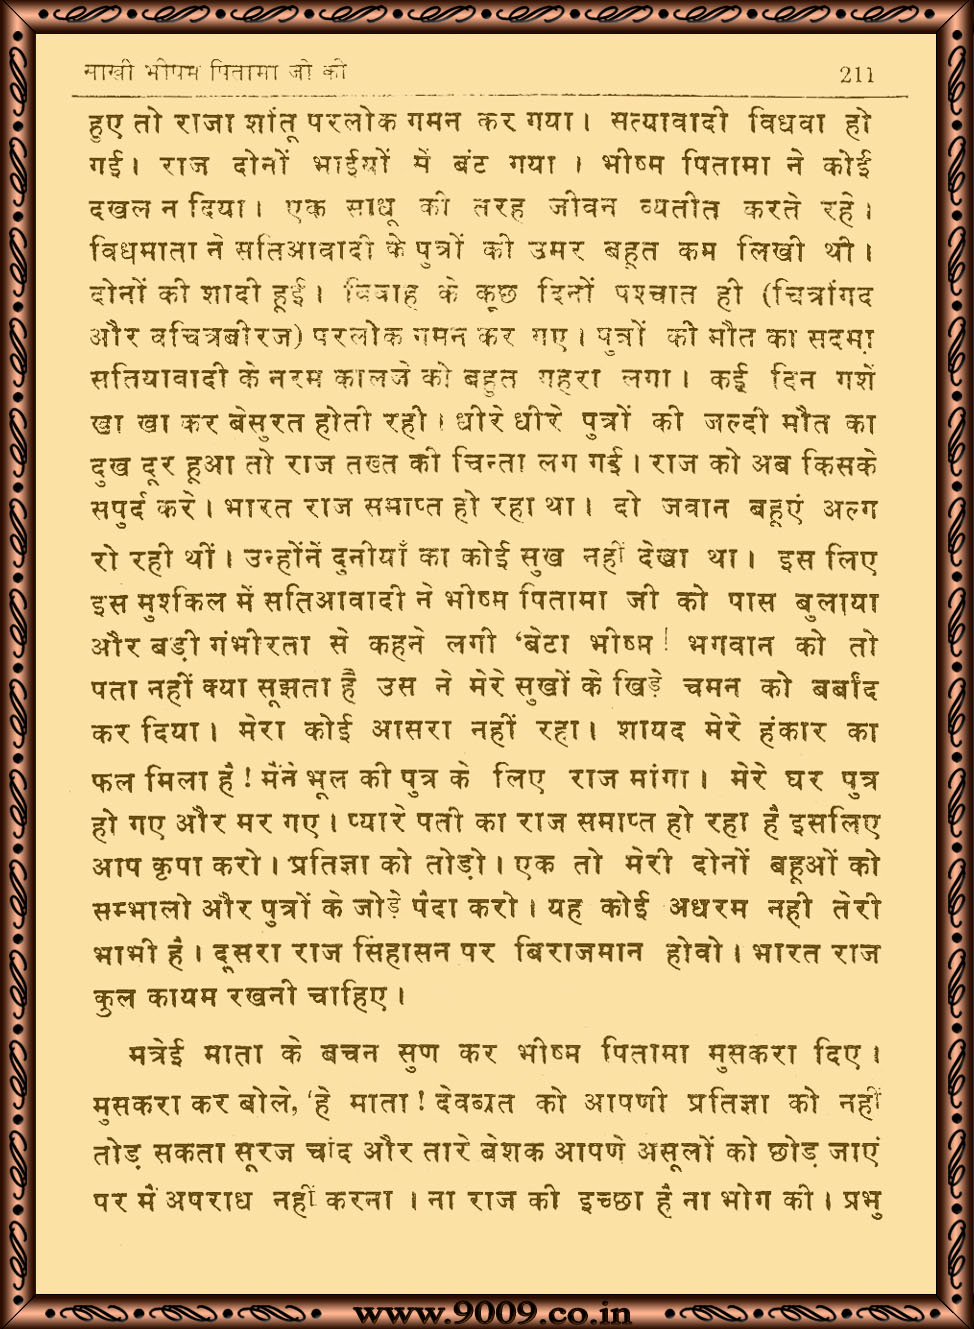 साखी भीषम पितामा जी की 211
हुए तो राजा शांतू परलोक गमन कर गया। सत्यावादी विधवा हो
गई। राज दोनों भाईयों में बंट गया । भीष्म पितामा ने कोई
दखल न दिया। एक साधू की तरह जीवन व्यतीत करते रहे।
विधमाता ने सतिआवादी के पुत्रों की उमर बहुत कम लिखी थी।
दोनों की शादी हूई। विवाह के कूछ दिनों पश्चात ही (चित्रांगद
और वचित्रबीरज) परलोक गमन कर गए। पुत्रों की मौत का सदमा
सतियावादी के नरम कालजे को बहुत गहरा लगा। कई दिन गशें
खा खा कर बेसुरत होती रही। धीरे धीरे पुत्रों की जल्दी मौत का
दुख दूर हूआ तो राज तख्त की चिन्ता लग गई। राज को अब किसके
सपुर्द करे। भारत राज समाप्त हो रहा था। दो जवान बहूएं अल्ग
रो रही थीं। उन्होंनें दुनीयाँ का कोई सुख नहीं देखा था। इस लिए
इस मुश्किल में सतिआवादी ने भीष्म पितामा जी को पास बुलाया
और बड़ी गंभीरता से कहने लगी ‘बेटा भीष्म! भगवान को तो
पता नहीं क्या सूझता है उस ने मेरे सुखों के खिड़े चमन को बर्बाद
कर दिया। मेरा कोई आसरा नहीं रहा। शायद मेरे हंकार का
फल मिला है! मैंने भूल की पुत्र के लिए राज मांगा। मेरे घर पुत्र
हो गए और मर गए। प्यारे पती का राज समाप्त हो रहा है इसलिए
आप कृपा करो। प्रतिज्ञा को तोड़ो। एक तो मेरी दोनों बहूओं को
सम्भालो और पुत्रों के जोड़े पैदा करो। यह कोई अधरम नही तेरी
भाभी है। दूसरा राज सिंहासन पर बिराजमान होवो। भारत राज
कुल कायम रखनी चाहिए।
मत्रेई माता के बचन सुण कर भीष्म पितामा मुसकरा दिए।
मुसकरा कर बोले, ‘हे माता! देवब्रत को आपणी प्रतिज्ञा को नहीं
तोड़ सकता सूरज चांद और तारे बेशक आपणे असूलों को छोड़ जाएं
पर मैं अपराध नहीं करना । ना राज की इच्छा है ना भोग की। प्रभु
www.9009.co.in